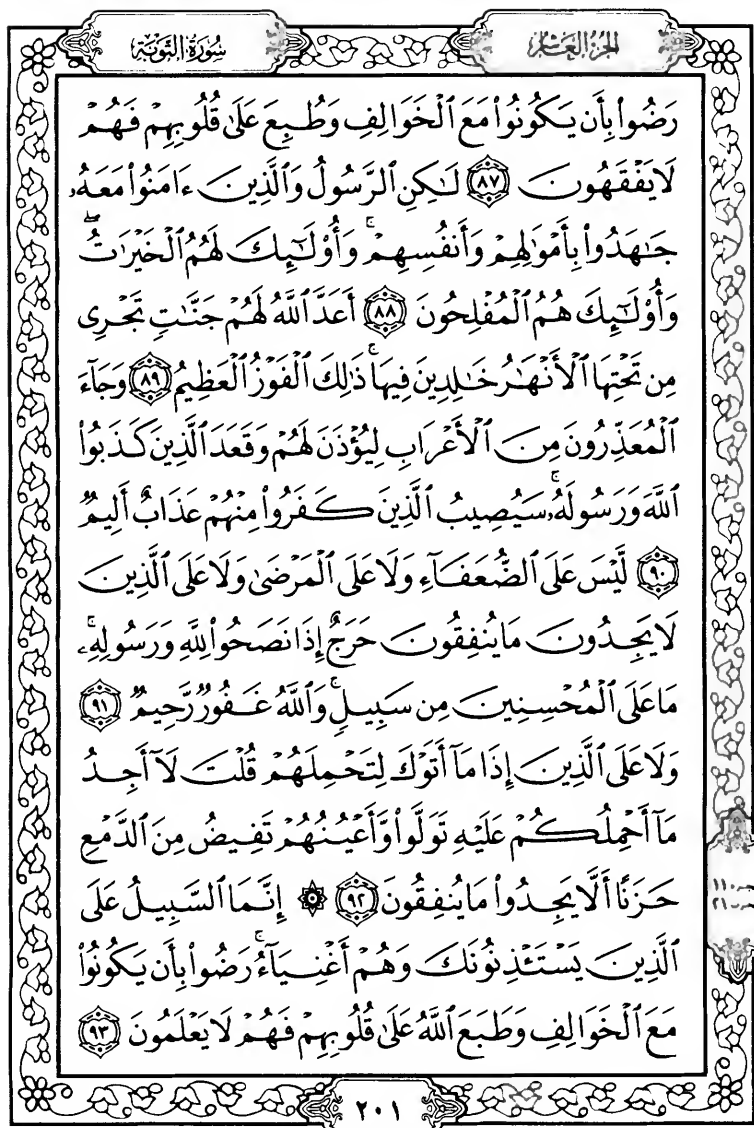 سُورَةُ التَّوْبَةِ
الجُزْءُ العَاشِرُ
رَضُوا۟ بِأَن يَكُونُوا۟ مَعَ ٱلْخَوَالِفِ وَطُبِعَ عَلَىٰ قُلُوبِهِمْ فَهُمْ
لَا يَفْقَهُونَ ٨٧ لَـٰكِنِ ٱلرَّسُولُ وَٱلَّذِينَ ءَامَنُوا۟ مَعَهُۥ
جَـٰهَدُوا۟ بِأَمْوَٰلِهِمْ وَأَنفُسِهِمْ ۚ وَأُو۟لَـٰٓئِكَ لَهُمُ ٱلْخَيْرَٰتُ ۖ
وَأُو۟لَـٰٓئِكَ هُمُ ٱلْمُفْلِحُونَ ٨٨ أَعَدَّ ٱللَّهُ لَهُمْ جَنَّـٰتٍ تَجْرِى
مِن تَحْتِهَا ٱلْأَنْهَـٰرُ خَـٰلِدِينَ فِيهَا ۚ ذَٰلِكَ ٱلْفَوْزُ ٱلْعَظِيمُ ٨٩ وَجَآءَ
ٱلْمُعَذِّرُونَ مِنَ ٱلْأَعْرَابِ لِيُؤْذَنَ لَهُمْ وَقَعَدَ ٱلَّذِينَ كَذَبُوا۟
ٱللَّهَ وَرَسُولَهُۥ ۚ سَيُصِيبُ ٱلَّذِينَ كَفَرُوا۟ مِنْهُمْ عَذَابٌ أَلِيمٌ
٩٠ لَّيْسَ عَلَى ٱلضُّعَفَآءِ وَلَا عَلَى ٱلْمَرْضَىٰ وَلَا عَلَى ٱلَّذِينَ
لَا يَجِدُونَ مَا يُنفِقُونَ حَرَجٌ إِذَا نَصَحُوا۟ لِلَّهِ وَرَسُولِهِۦ ۚ
مَا عَلَى ٱلْمُحْسِنِينَ مِن سَبِيلٍ ۚ وَٱللَّهُ غَفُورٌ رَّحِيمٌ ٩١
وَلَا عَلَى ٱلَّذِينَ إِذَا مَآ أَتَوْكَ لِتَحْمِلَهُمْ قُلْتَ لَآ أَجِدُ
مَآ أَحْمِلُكُمْ عَلَيْهِ تَوَلَّوا۟ وَّأَعْيُنُهُمْ تَفِيضُ مِنَ ٱلدَّمْعِ
حَزَنًا أَلَّا يَجِدُوا۟ مَا يُنفِقُونَ ٩٢ ۞ إِنَّمَا ٱلسَّبِيلُ عَلَى
ٱلَّذِينَ يَسْتَـْٔذِنُونَكَ وَهُمْ أَغْنِيَآءُ ۚ رَضُوا۟ بِأَن يَكُونُوا۟
مَعَ ٱلْخَوَالِفِ وَطَبَعَ ٱللَّهُ عَلَىٰ قُلُوبِهِمْ فَهُمْ لَا يَعْلَمُونَ ٩٣
٢٠١